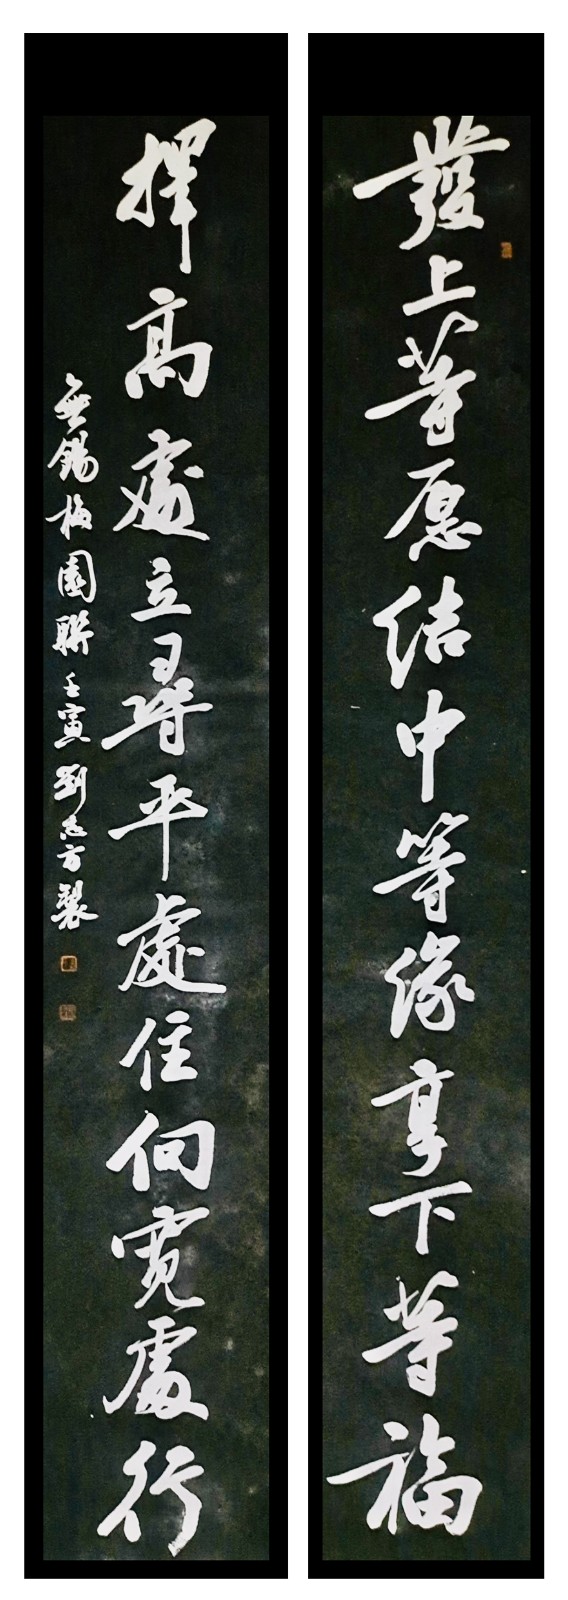 發上等愿结中等緣享下等福
擇高處立尋平處住向寬處行
無錫梅園聯壬寅劉志方製